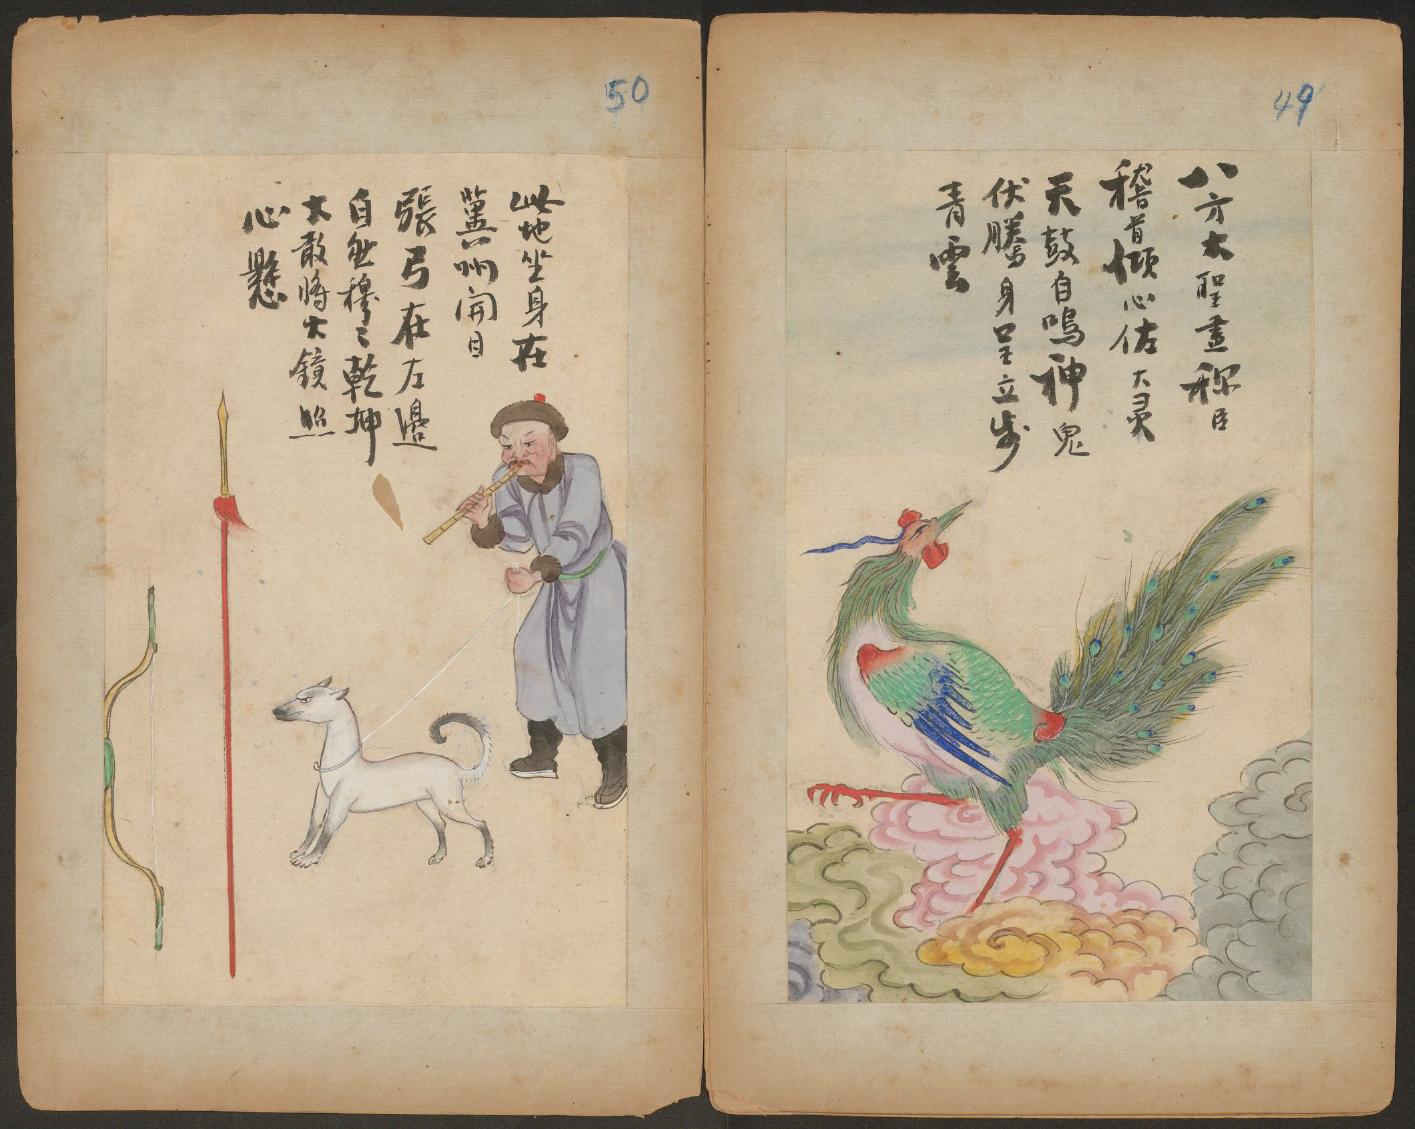 49
八方大聖盡称臣
稽首傾心佐大灵
天鼓自鳴神鬼
伏騰身呈立步
青雲
50
此地坐身在
冀州開目
張弓在左邊
自然穆〻乾坤
大敢將大鏡照
心懸